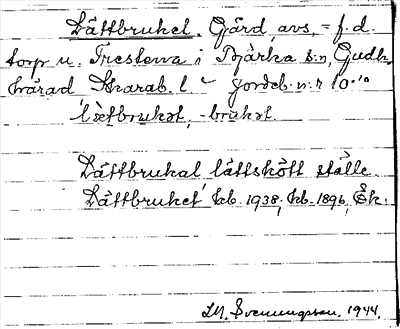 Lättbruket. Gård, avs, = f.d.
torp u. Trestena i Bjärka sn, Gudh.
härad Skarab. l. jordeb. n:r 10.10
lætbrukət, -brukət.
Lättbruket lättskött ställe.
Lättbruket kb. 1938, kb. 1896, Ek.
M. Svenungsson. 1944.